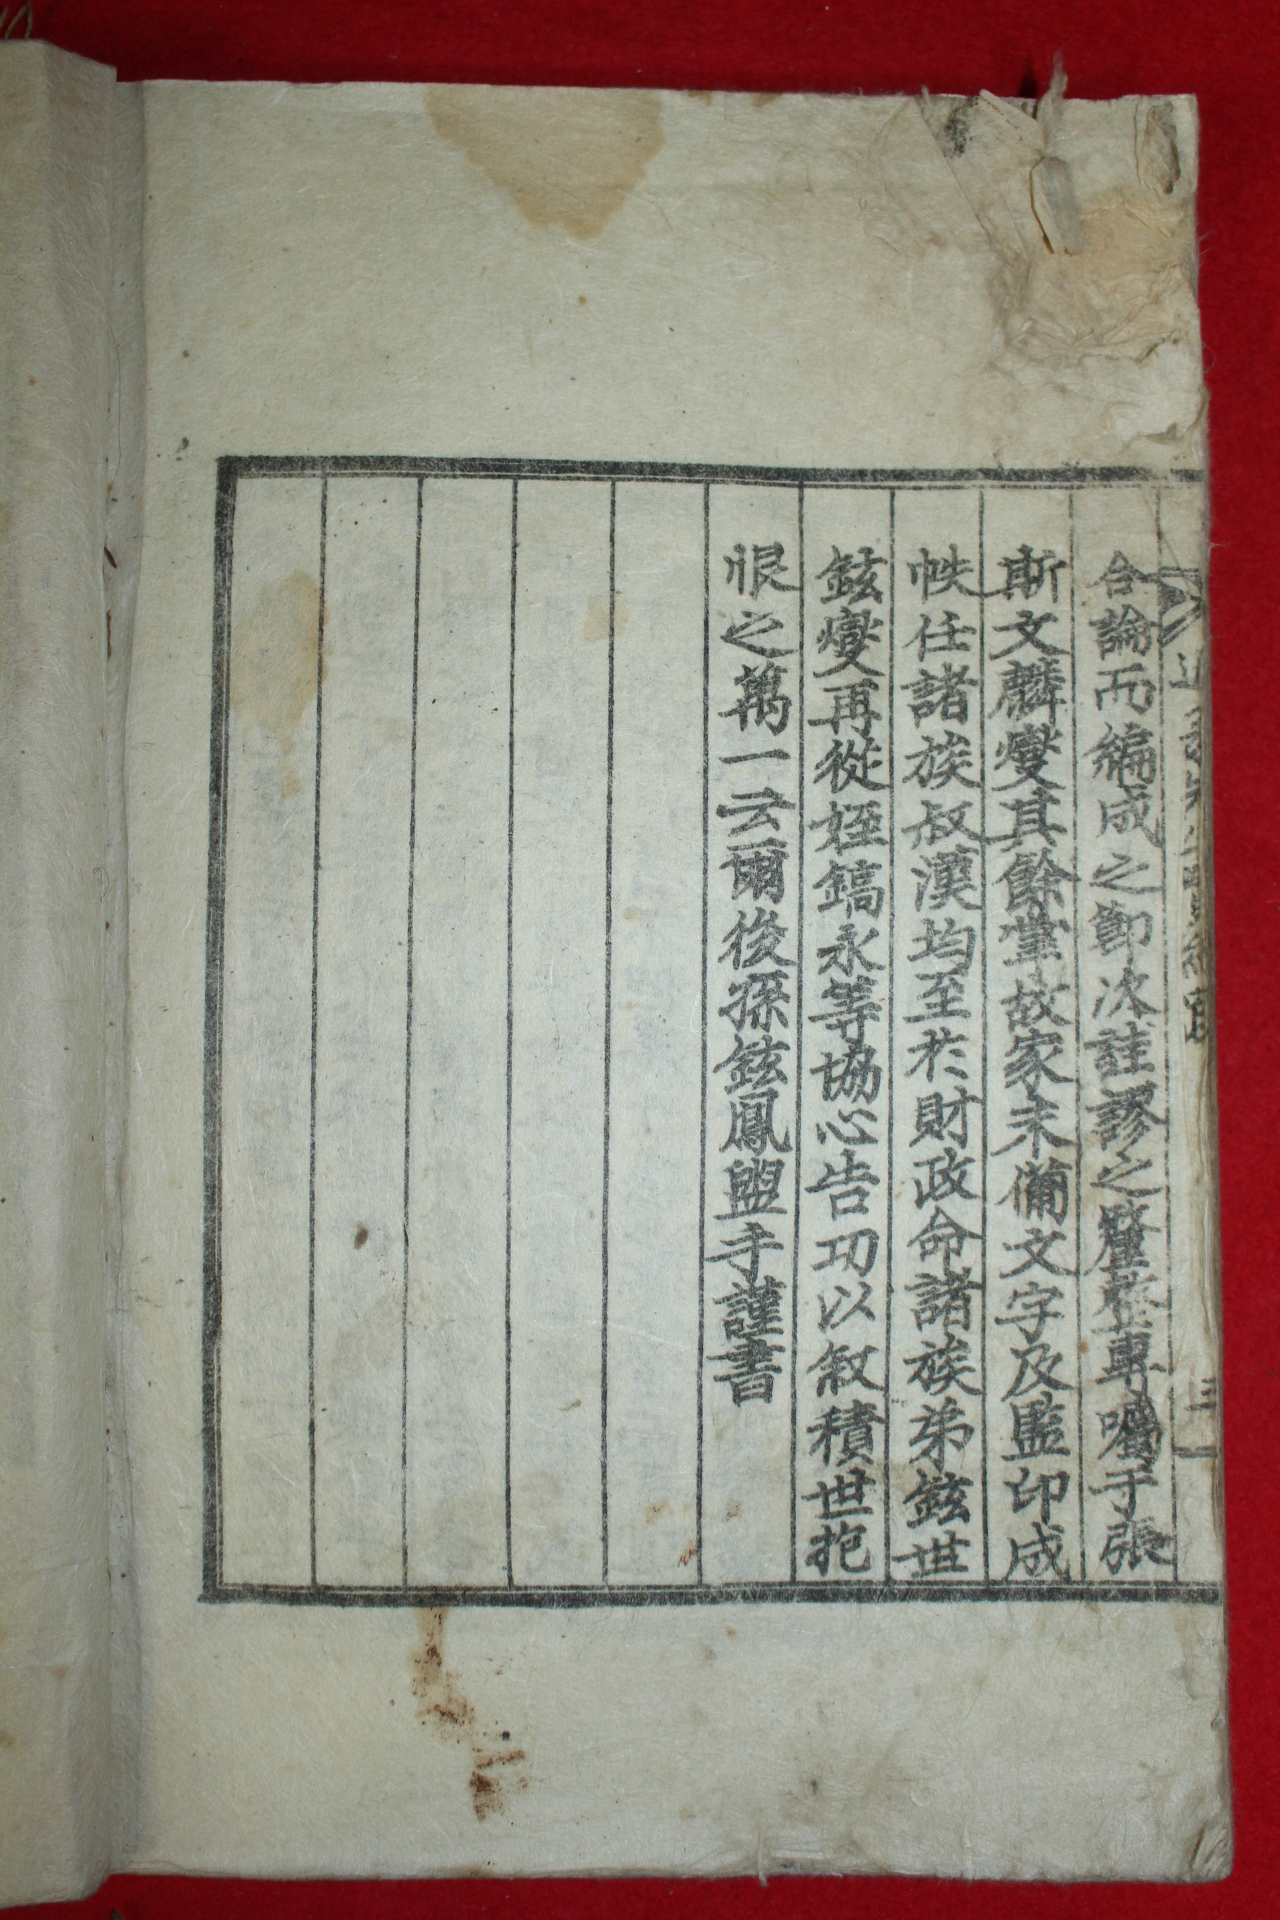 合論而編成之節次註謬之釐整專囑于張
斯文麟燮其餘掌故家未備文字及監印成
帙任諸族叔漢均至於財政命諸族弟鉉世
鉉燮再從姪鎬永等協心告功以敍積世抱
恨之萬一云爾後孫鉉鳳盥手謹書
三